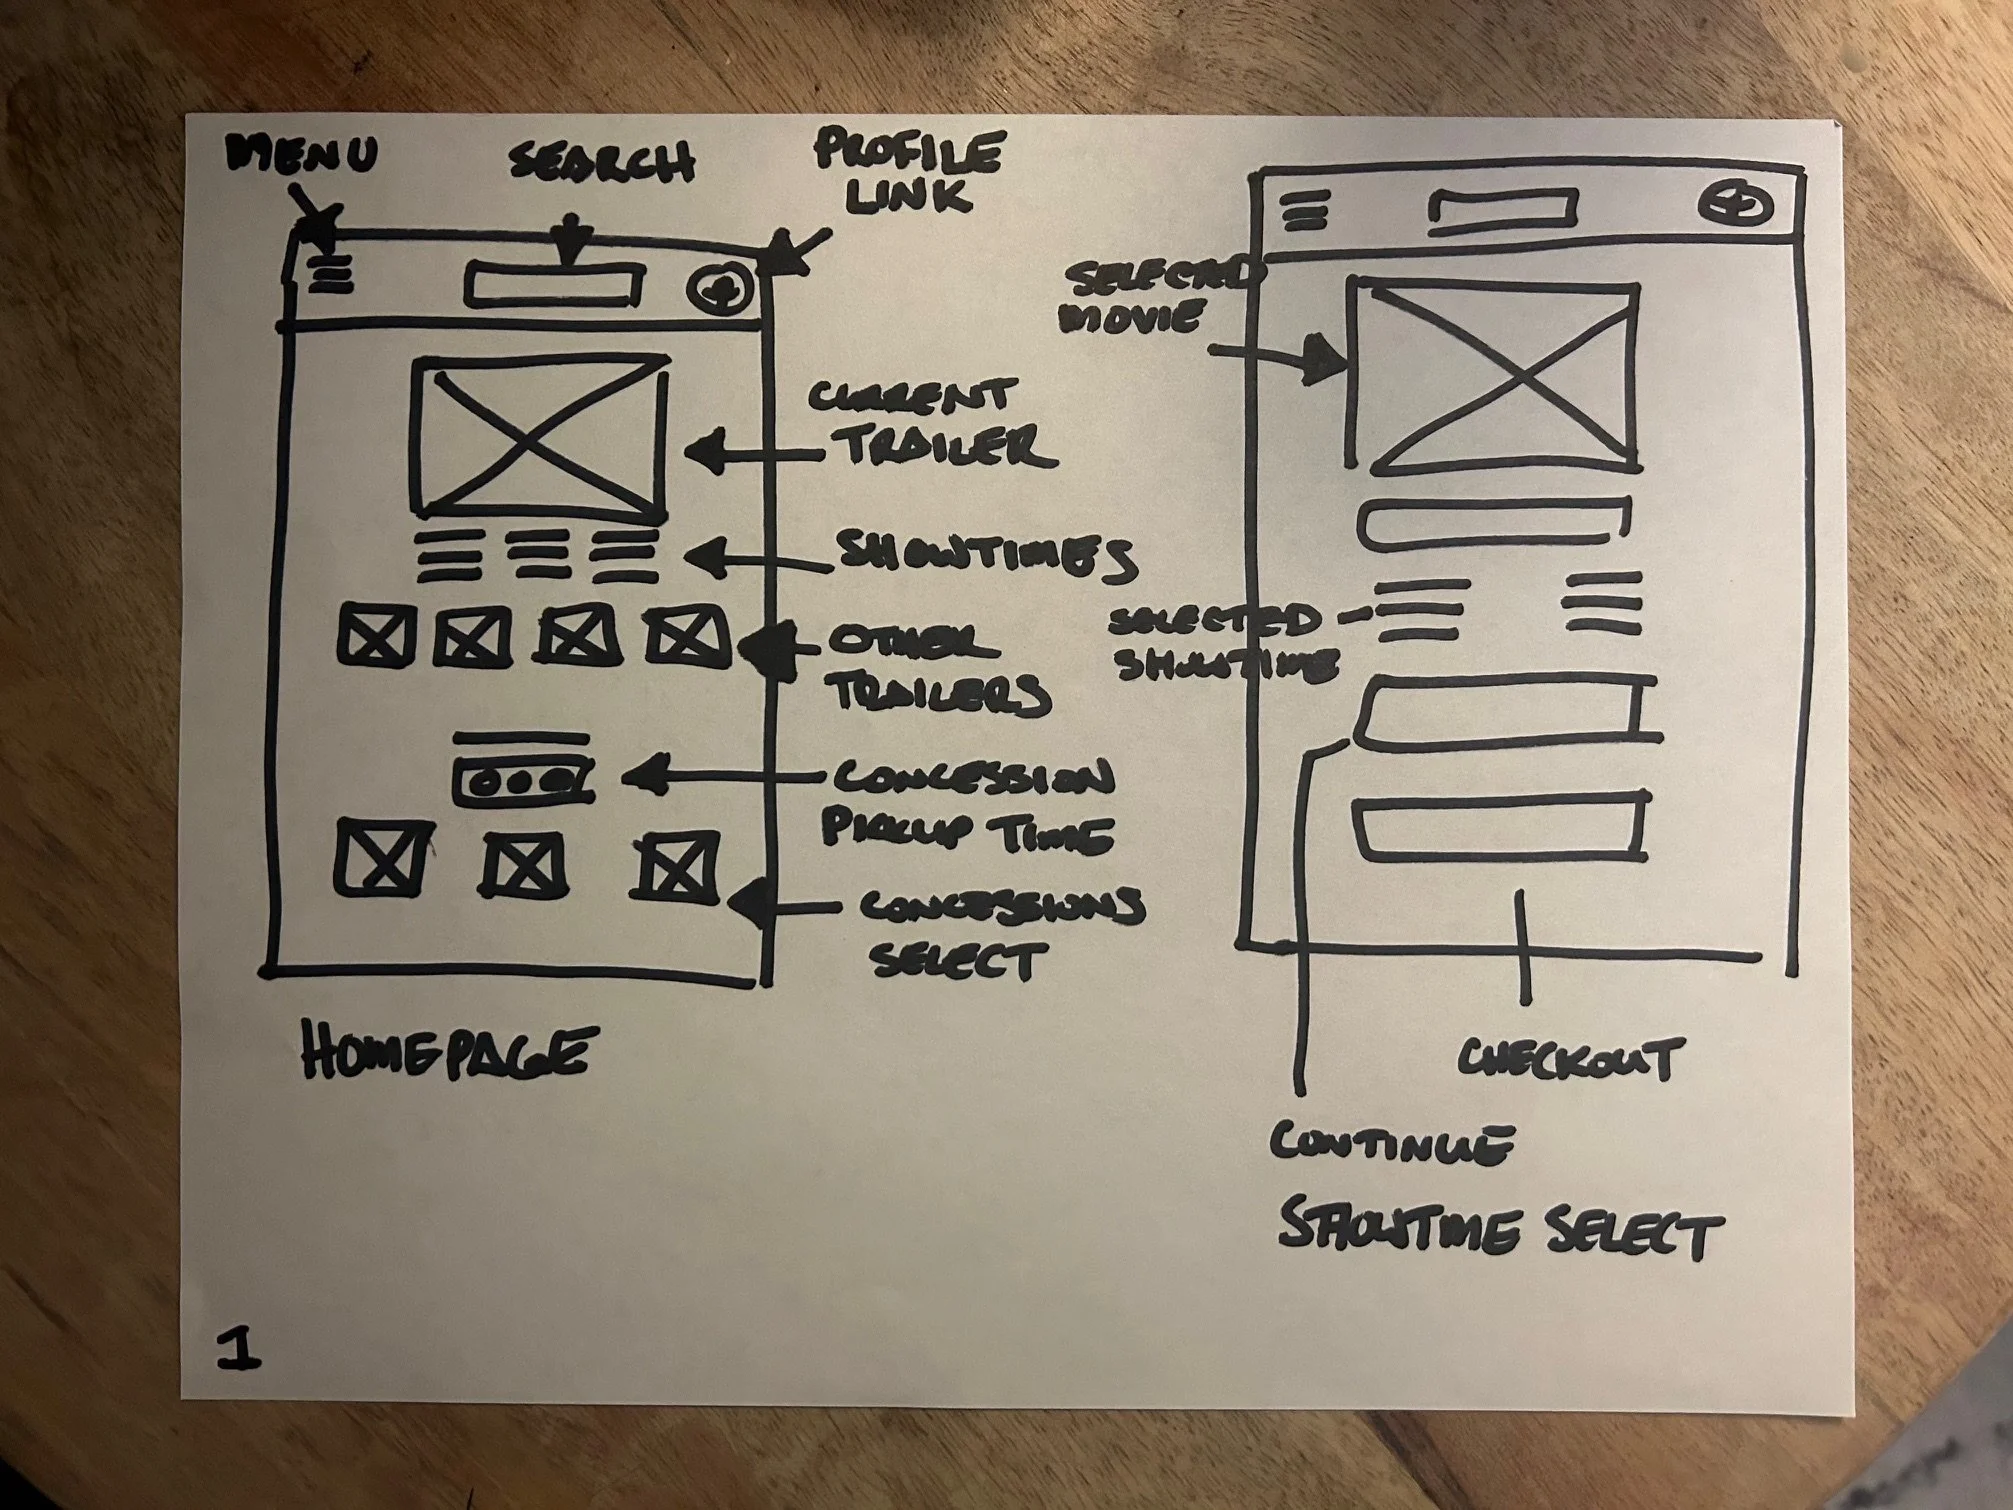 MENU
SEARCH
PROFILE
LINK
CURRENT
TRAILER
SHOWTIMES
OTHER
TRAILERS
CONCESSION
PICKUP TIME
CONCESSIONS
SELECT
HOMEPAGE
SELECTED
MOVIE
SELECTED
SHOWTIME
CHECKOUT
CONTINUE
SHOWTIME SELECT
1